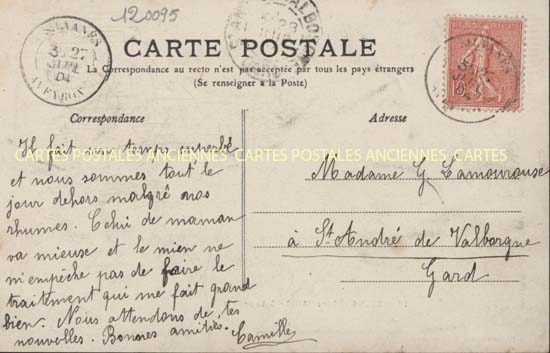 120095
CARTE POSTALE
La Correspondance au recto n'est pas acceptée par tous les pays étrangers
(Se renseigner à la Poste)
Correspondance
Adresse
SYLVANÈS
3E 27
JUIL
04
AVEYRON
Il fait un temps superbe
et nous sommes tout le
jour dehors malgré nos
rhumes. Celui de maman
va mieuse et le mien ne
m'empêche pas de faire le
traitement qui me fait grand
bien. Nous attendons de tes
nouvelles. Bonnes amitiés.
Camille
Madame G. Lamourouse
à St André de Valborgne
Gard
CARTES POSTALES ANCIENNES CARTES POSTALES ANCIENNES CARTES